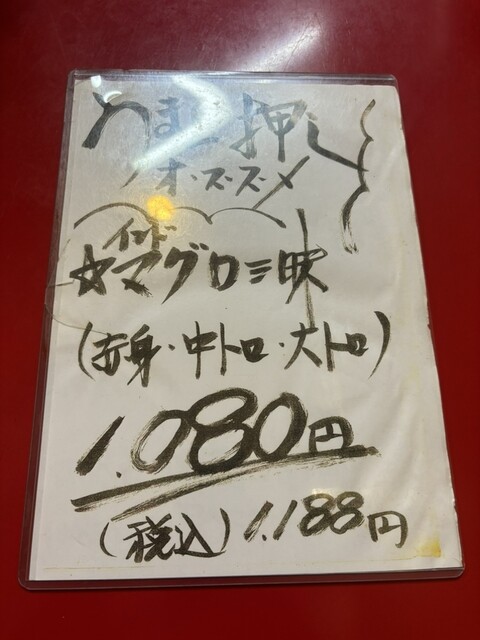 押し
オススメ
インド
☆マグロ三昧
(赤身・中トロ・大トロ)
1.080円
(税込)1.188円